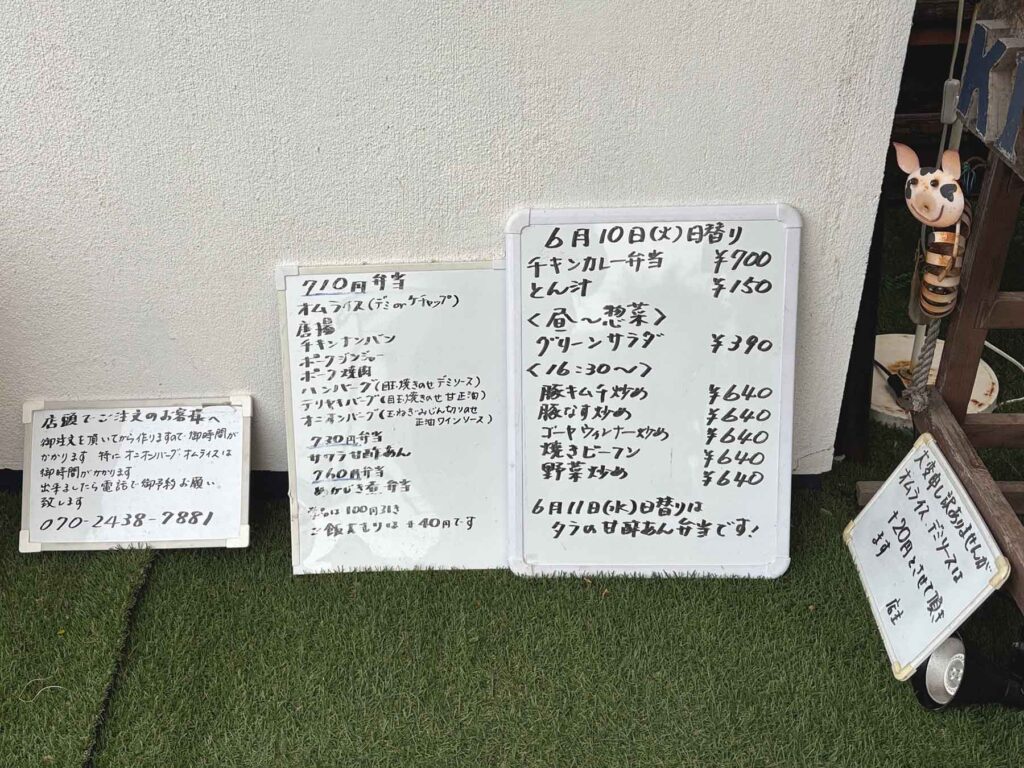 店頭でご注文のお客様へ
御注文を頂いてから作りますので御時間が
かかります 特にオニオンバーグ オムライスは
御時間がかかります
出来ましたら電話で御予約お願い
致します
070-2438-7881
710円弁当
オムライス(デミorケチャップ)
唐揚
チキンナンバン
ポークジンジャー
ポーク焼肉
ハンバーグ(目玉焼きのせデミソース)
テリヤキバーグ(目玉焼きのせ甘正油)
オニオンバーグ(玉ねぎみじん切りのせ
正油ワインソース)
730円弁当
サワラ甘酢あん
760円弁当
めかじき煮弁当
は100円引き
ご飯大もりは +40円です
6月10日(火)日替り
チキンカレー弁当 ¥700
とん汁 ¥150
<昼〜惣菜>
グリーンサラダ ¥390
<16:30〜>
豚キムチ炒め ¥640
豚なす炒め ¥640
ゴーヤウィンナー炒め ¥640
焼きビーフン ¥640
野菜炒め ¥640
6月11日(水)日替りは
タラの甘酢あん弁当です!
大変申し訳ありませんが
オムライス デミソースは
+20円とさせて頂き
ます 店主
KI